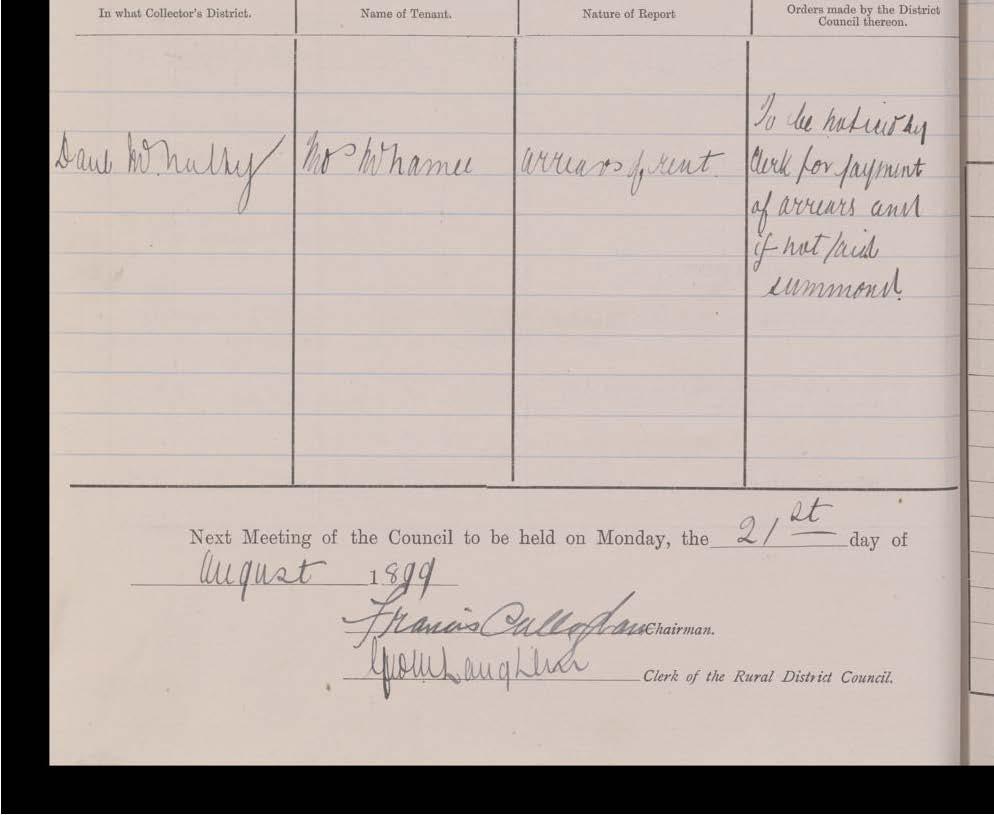 In what Collector's District.
Name of Tenant.
Nature of Report
Orders made by the District
Council thereon.
Danl McNulty
Thos McNamee
arrears of rent.
To be noticed by
Clerk for payment
of arrears and
if not paid
summond.
Next Meeting of the Council to be held on Monday, the 21st day of
August 1899
Francis Callaghan Chairman.
Clerk of the Rural District Council.